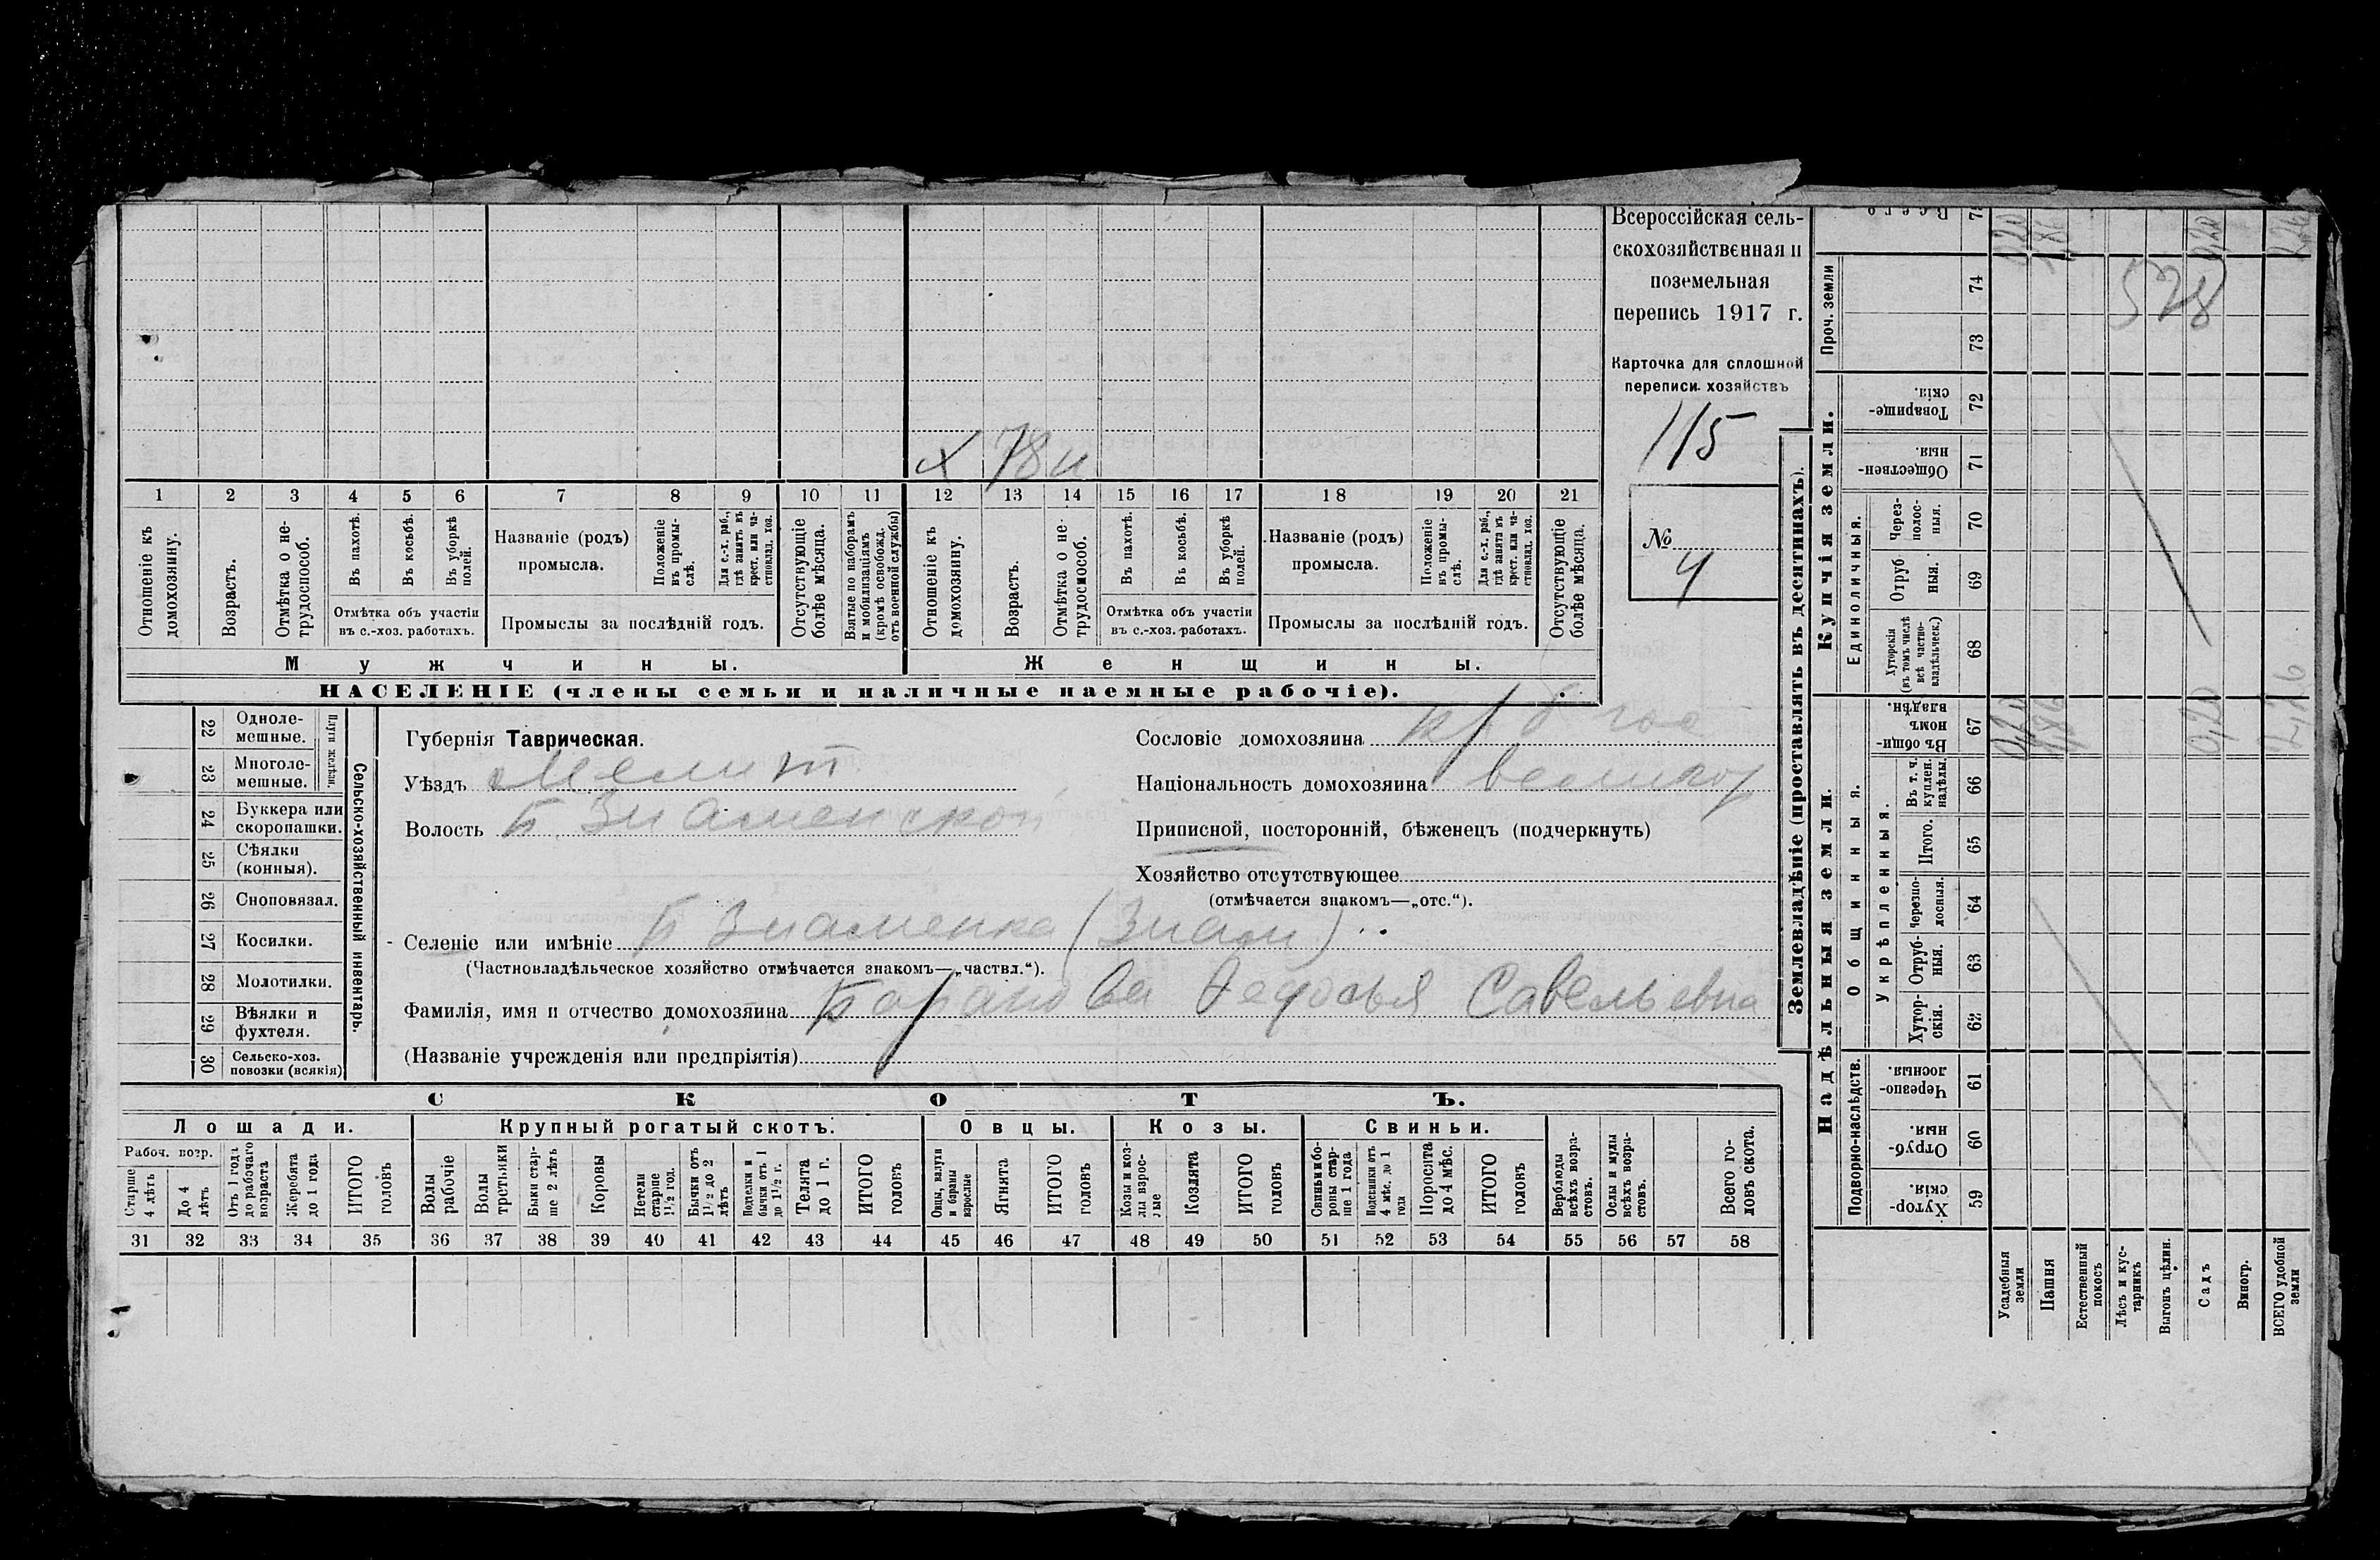 Всероссійская сель-
скохозяйственная и
поземельная
перепись 1917 г.
Карточка для сплошной
переписи хозяйствъ
115
№
4
х 78 н
1 2 3 4 5 6 7 8 9 10 11 12 13 14 15 16 17 18 19 20 21
Отношеніе къ домохозяину.
Возрастъ.
Отмѣтка о не-трудоспособ.
Въ пахотѣ.
Въ косьбѣ.
Въ уборкѣ полей.
Отмѣтка объ участіи
въ с.-хоз. работахъ.
Названіе (родъ)
промысла.
Положеніе въ промы-слѣ.
Для с.-х. раб., гдѣ занятъ въ крест. или ча-стновлад. хоз.
Промыслы за послѣдній годъ.
Отсутствующіе болѣе мѣсяца.
Взятые по наборамъ и мобилизаціямъ (кромѣ освобожд. отъ военной службы)
Отношеніе къ домохозяину.
Возрастъ.
Отмѣтка о не-трудоспособ.
Въ пахотѣ.
Въ косьбѣ.
Въ уборкѣ полей.
Отмѣтка объ участіи
въ с.-хоз. работахъ.
Названіе (родъ)
промысла.
Положеніе въ промы-слѣ.
Для с.-х. раб., гдѣ занята въ крест. или ча-стновлад. хоз.
Промыслы за послѣдній годъ.
Отсутствующіе болѣе мѣсяца.
Мужчины. Женщины.
НАСЕЛЕНІЕ (члены семьи и наличные наемные рабочіе).
22 Одноле-мешные.
23 Многоле-мешные.
Плуги желѣзн.
24 Буккера или скоропашки.
25 Сѣялки (конныя).
26 Сноповязал.
27 Косилки.
28 Молотилки.
29 Вѣялки и фухтеля.
30 Сельско-хоз. повозки (всякія)
Сельско-хозяйственный инвентарь.
Губернія Таврическая.
Уѣздъ Мелит
Волость Б Знаменской
Сословіе домохозяина
Національность домохозяина великор
Приписной, посторонній, бѣженецъ (подчеркнуть)
Хозяйство отсутствующее
(отмѣчается знакомъ—„отс.“).
Селеніе или имѣніе Б Знаменка (Знам)
(Частновладѣльческое хозяйство отмѣчается знакомъ—„частвл.“).
Фамилія, имя и отчество домохозяина Баранова Федосья Савельевна
(Названіе учрежденія или предпріятія)
СКОТЪ.
Лошади. Крупный рогатый скотъ. Овцы. Козы. Свиньи.
Рабоч. возр.
Старше 4 лѣтъ
До 4 лѣтъ
Отъ 1 года до рабочаго возраста
Жеребята до 1 года
ИТОГО головъ
Волы рабочіе
Волы третьяки
Быки стар-ше 2 лѣтъ
Коровы
Нетели старше 1½ год.
Бычки отъ 1½ до 2 лѣтъ
Подтелки и бычки отъ 1 до 1½ г.
Телята до 1 г.
ИТОГО головъ
Овцы, валухи и бараны взрослые
Ягнята
ИТОГО головъ
Козы и коз-лы взрос-лые
Козлята
ИТОГО головъ
Свиньи и бо-ровы стар-ше 1 года
Подсвинки отъ 4 мѣс. до 1 года
Поросята до 4 мѣс.
ИТОГО головъ
Верблюды всѣхъ возра-стовъ.
Ослы и мулы всѣхъ возра-стовъ.
Всего го-ловъ скота.
31 32 33 34 35 36 37 38 39 40 41 42 43 44 45 46 47 48 49 50 51 52 53 54 55 56 57 58
Землевладѣніе (проставлять въ десятинахъ).
Надѣльныя земли. Купчія земли. Проч. земли
Подворно-наслѣдств.
Общинныя.
Укрѣпленныя.
Единоличныя.
Хутор-скія. 59
Отруб-ныя. 60
Черезпо-лосныя. 61
Хутор-скія. 62
Отруб-ныя. 63
Черезпо-лосныя. 64
Итого. 65
Въ т. ч. куплен. надѣлы. 66
Въ общи-номъ владѣн. 67
Хуторскія (въ томъ числѣ всѣ частно-владѣльческ.) 68
Отруб-ныя. 69
Черезполос-ныя. 70
Обществен-ныя. 71
Товарище-скія 72
73
74
Всего 75
528
0,20
0,20
Усадебныя земли
Пашня
Естественный покосъ
Лѣсъ и кус-тарникъ
Выгонъ цѣлин.
Садъ
Виногр.
ВСЕГО удобной земли